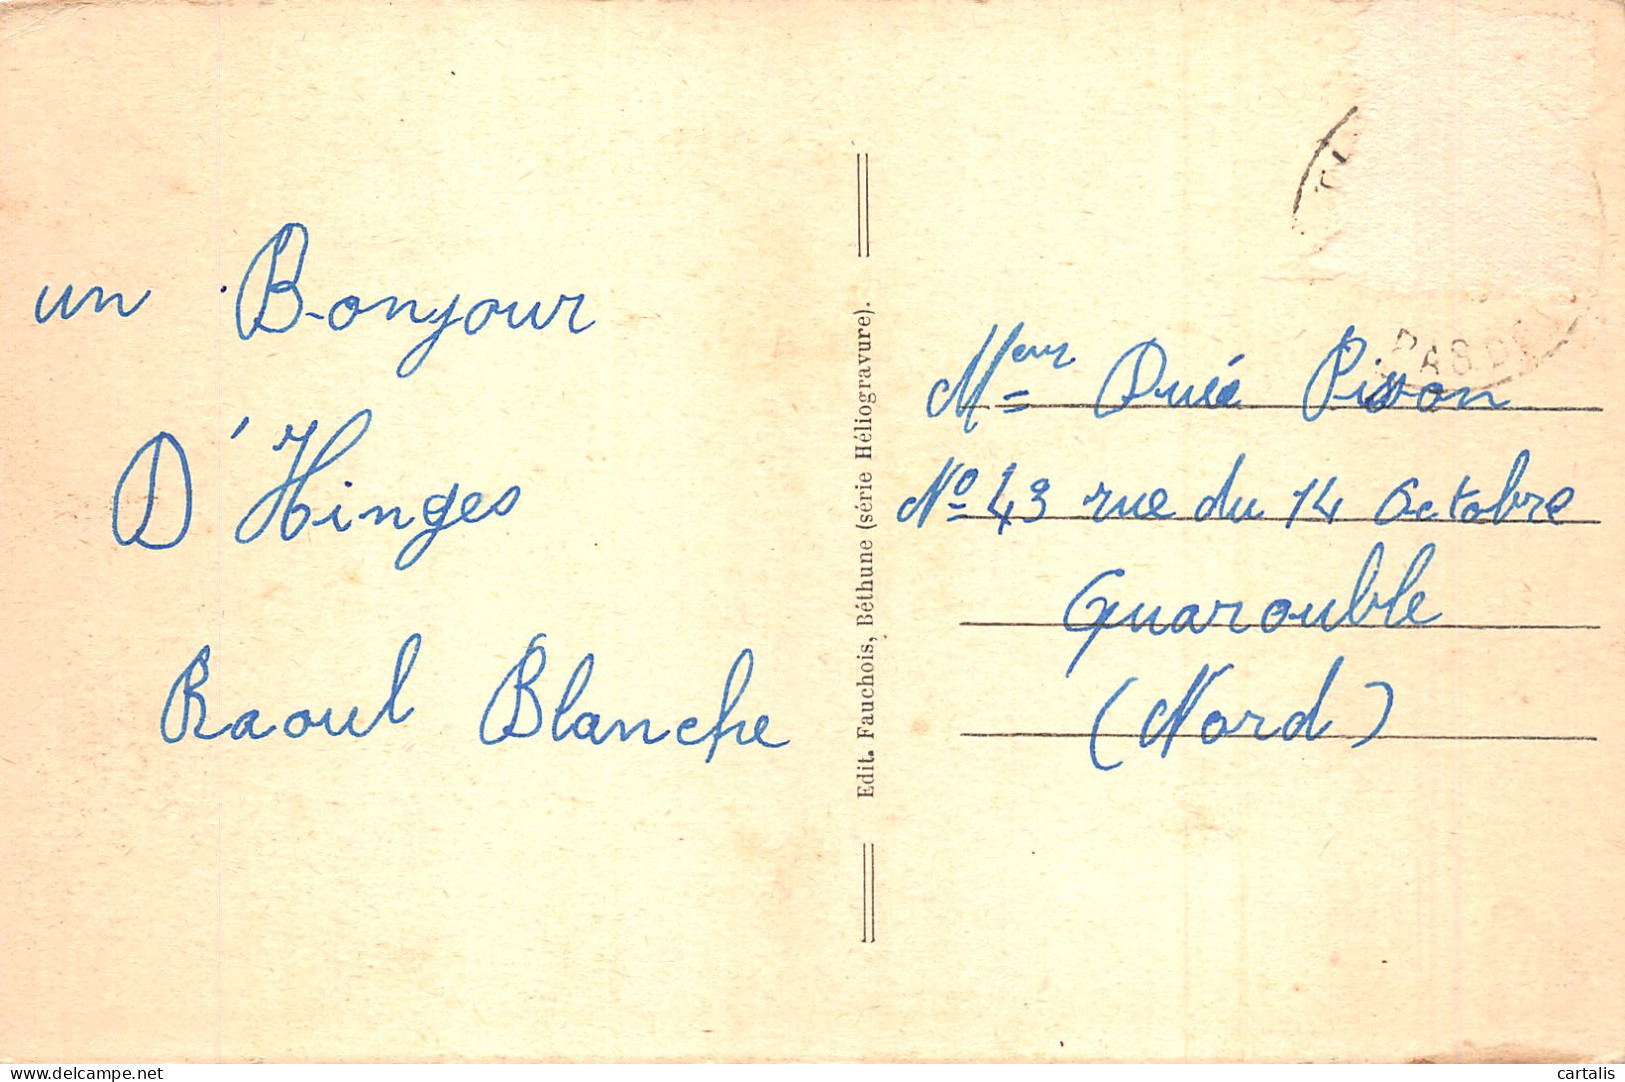 un Bonjour
D'Hinges
Raoul Blanche
Edit. Fauchois, Béthune (série Héliogravure).
Meur Pisson
N° 43 rue du 14 Octobre
Quarouble
(Nord)
PAS DE
delcampe.net
cartalis